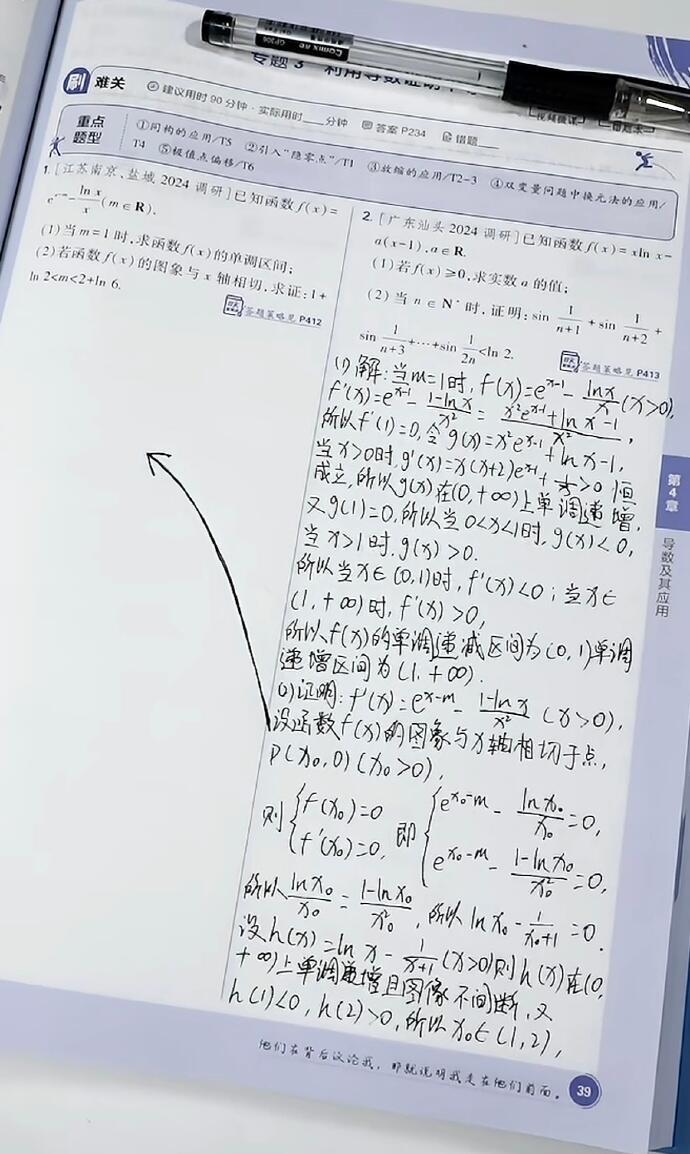 专题3 利用导数证明不
刷 难关
建议用时90分钟·实际用时____分钟 答案P234 错题____
重点题型
①同构的应用/T5 ②引入“隐零点”/T1 ③放缩的应用/T2-3 ④双变量问题中换元法的应用/
T4 ⑤极值点偏移/T6
1.[江苏南京、盐城2024调研]已知函数f(x)=
e^{x-m}-\frac{ln x}{x}(m∈R).
(1)当m=1时,求函数f(x)的单调区间;
(2)若函数f(x)的图象与x轴相切,求证:1+
ln 2<m<2+ln 6.
答题策略见P412
2.[广东汕头2024调研]已知函数f(x)=xln x-
a(x-1),a∈R.
(1)若f(x)≥0,求实数a的值;
(2)当n∈N*时,证明:sin \frac{1}{n+1}+sin \frac{1}{n+2}+
sin \frac{1}{n+3}+…+sin \frac{1}{2n}<ln 2.
答题策略见P413
(1)解:当m=1时,f(x)=e^{x-1}-\frac{lnx}{x}(x>0),
f'(x)=e^{x-1}-\frac{1-ln x}{x²}=\frac{x²e^{x-1}+ln x-1}{x²},
所以f'(1)=0,令g(x)=x²e^{x-1}+ln x-1,
当x>0时,g'(x)=x(x+2)e^{x-1}+\frac{1}{x}>0恒
成立,所以g(x)在(0,+∞)上单调递增,
又g(1)=0,所以当0<x<1时,g(x)<0,
当x>1时,g(x)>0.
所以当x∈(0,1)时,f'(x)<0;当x∈
(1,+∞)时,f'(x)>0,
所以f(x)的单调递减区间为(0,1)单调
递增区间为(1,+∞).
证明:f'(x)=e^{x-m}-\frac{1-ln x}{x²}(x>0),
设函数f(x)的图象与x轴相切于点,
P(x₀,0)(x₀>0),
则{f(x₀)=0 f'(x₀)=0, 即{e^{x₀-m}-\frac{ln x₀}{x₀}=0, e^{x₀-m}-\frac{1-ln x₀}{x₀²}=0,
所以\frac{ln x₀}{x₀}=\frac{1-ln x₀}{x₀²},所以ln x₀-\frac{1}{x₀+1}=0.
设h(x)=ln x-\frac{1}{x+1}(x>0)则h(x)在(0,
+∞)上单调递增且图像不间断,又
h(1)<0,h(2)>0,所以x₀∈(1,2),
第4章
导数及其应用
他们在背后议论我,那就说明我走在他们前面。
39